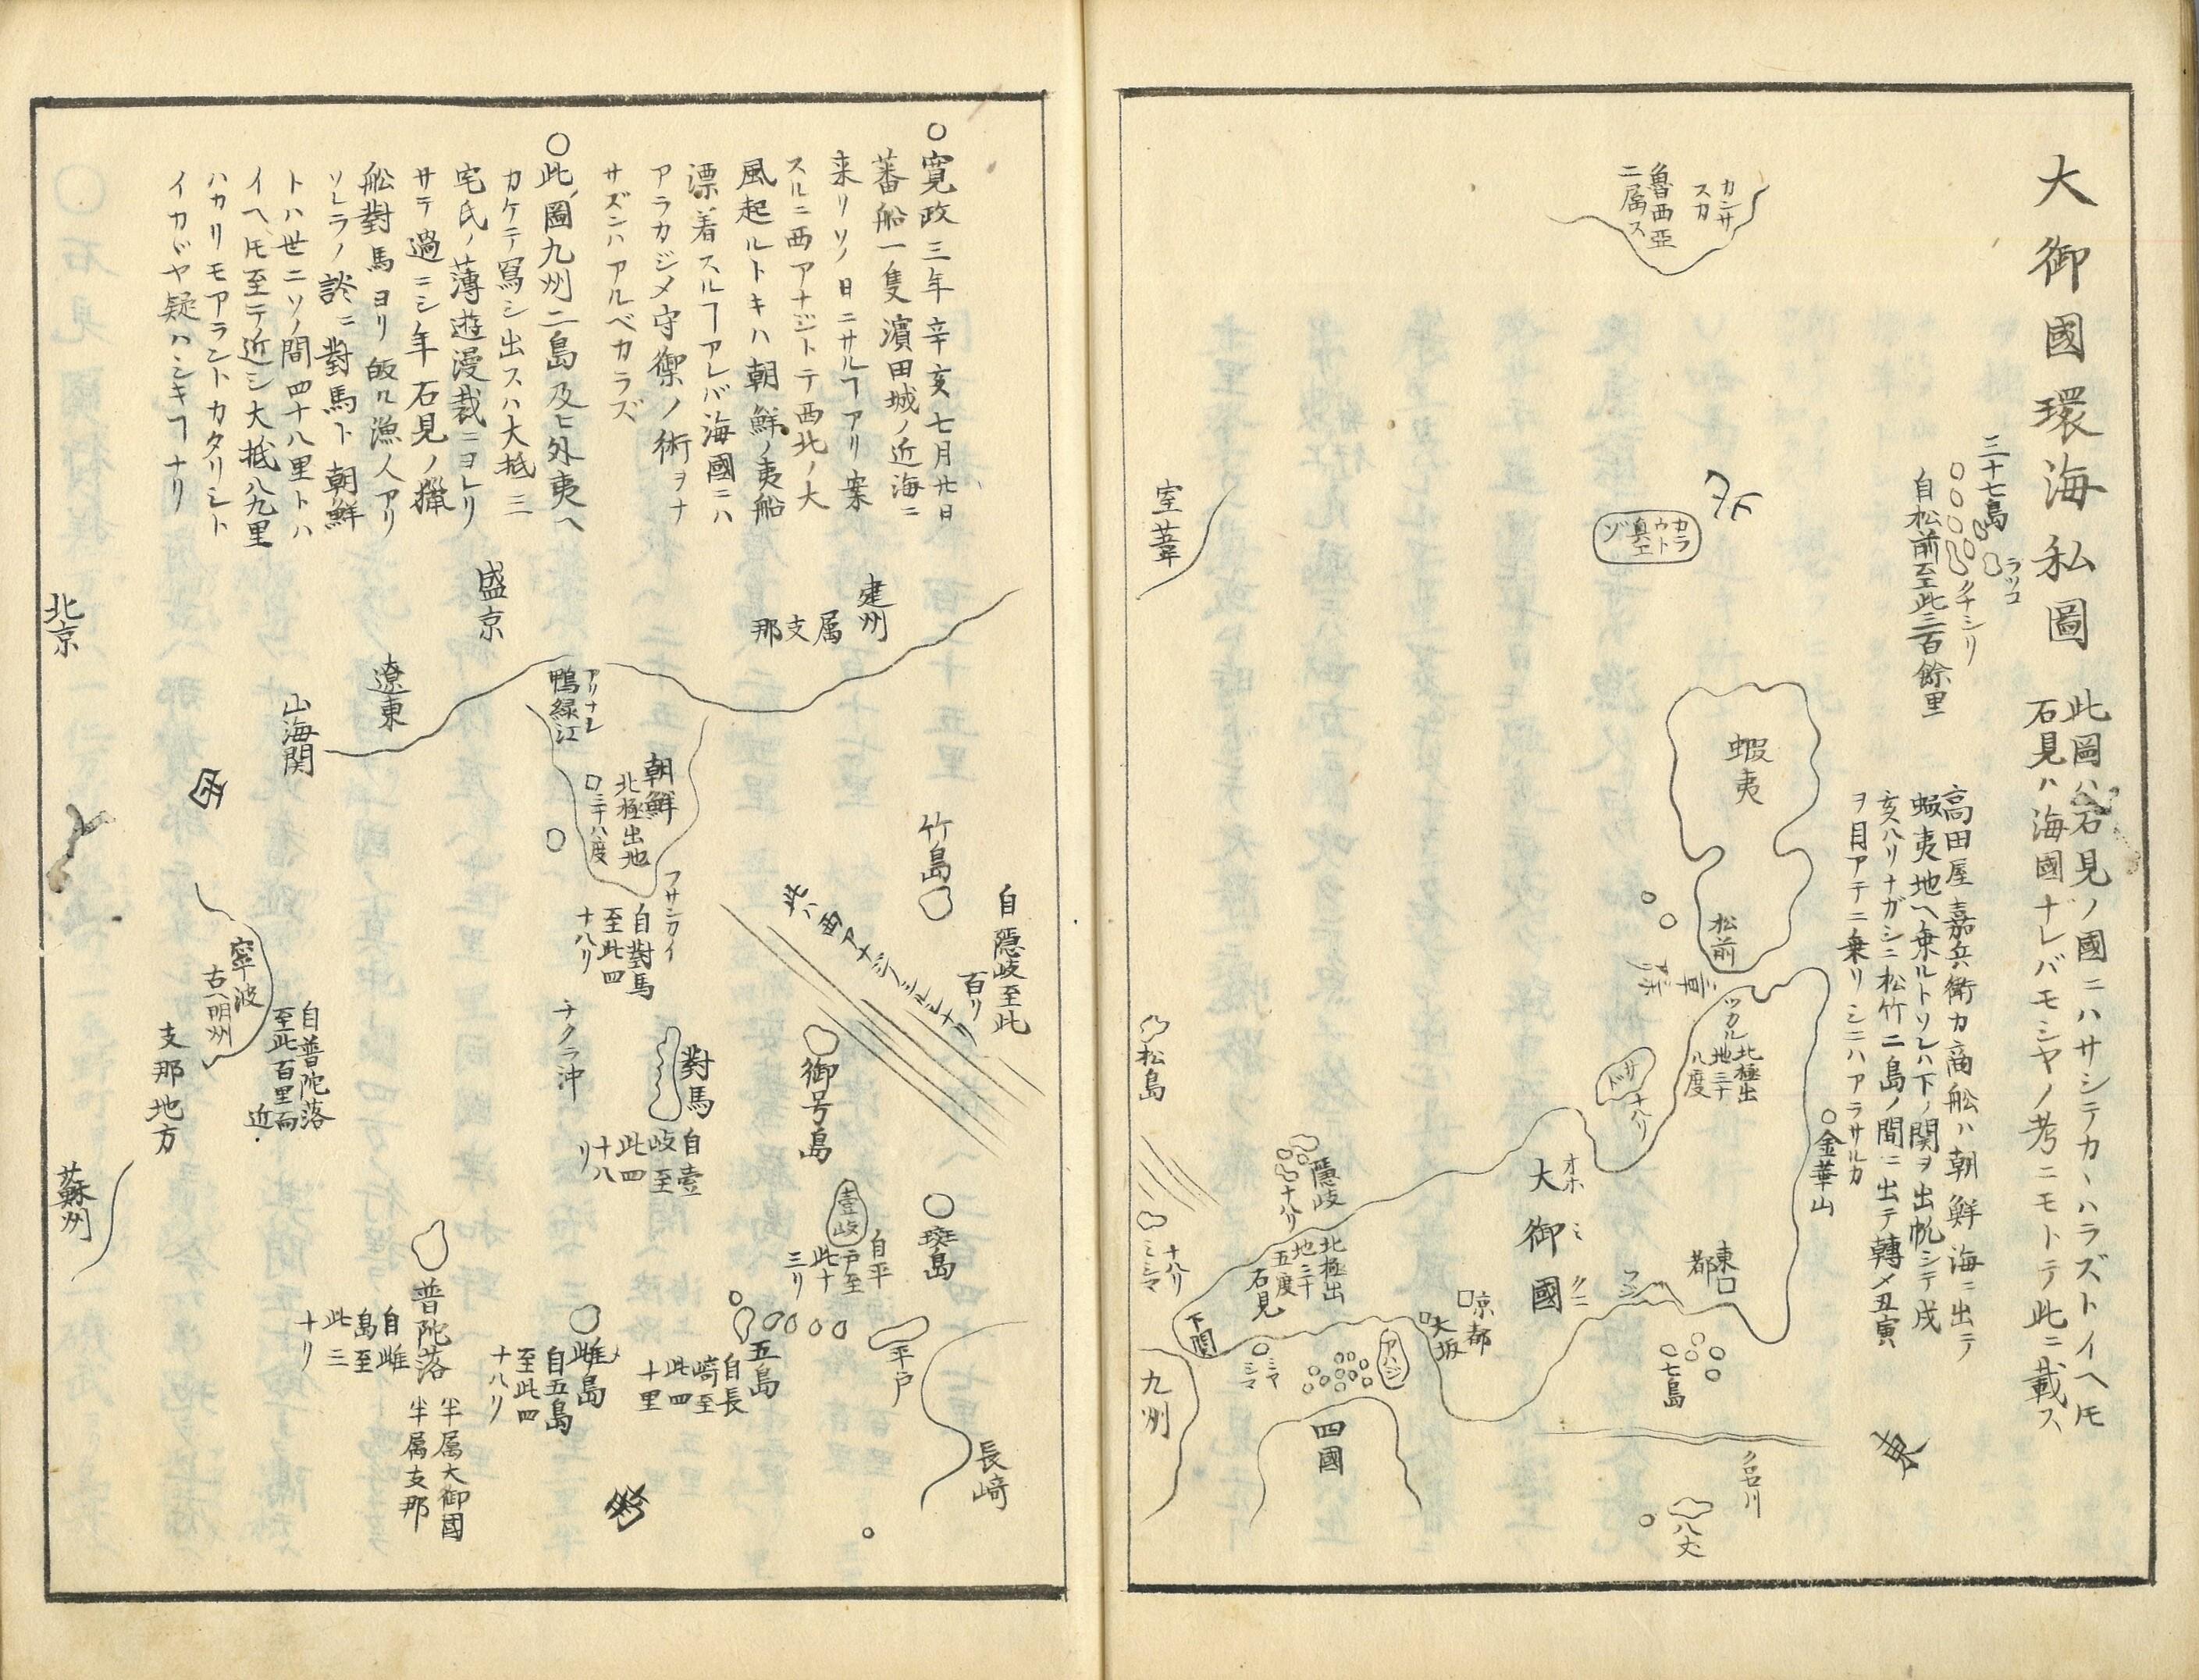 大御國環海私圖
此圖ハ石見ノ國ニハサシテカヽハラズトイヘ𪜈
石見ハ海國ナレバモシヤノ考ニモトテ此ニ載ス
三十七島
ラッコ
クナシリ
自松前至此三百餘里
高田屋嘉兵衛カ商舩ハ朝鮮海ニ出テ
蝦夷地ヘ乗ルトソレハ下ノ関ヲ出帆シテ戌
亥ハリナガシニ松竹二島ノ間ニ出テ轉メ丑寅
ヲ目アテニ乗リシニハアラサルカ
カンサ
スカ
魯西亞
ニ属ス
北
カラ
フト
真エ
ゾ
蝦夷
松前
ツカル
北極出
地三十
八度
サド
十八リ
金華山
室韋
松島
隱岐
十八リ
北極出
地三十
五度
石見
十八リ
ミシマ
下関
九州
ミマ
シマ
アハジ
四國
大坂
京都
オホ ミ クニ
大御國
フジ
東都
七島
クロセ川
八丈
東
○寛政三年辛亥七月廿日
蕃船一隻濱田城ノ近海ニ
来リソノ日ニサルヿアリ案
スルニ西アナジトテ西北ノ大
風起ルトキハ朝鮮ノ夷船
漂着スルヿアレバ海國ニハ
アラカジメ守禦ノ術ヲナ
サズンハアルベカラズ
○此圖九州二島及ヒ外夷ヘ
カケテ冩シ出スハ大抵三
宅氏ノ薄遊漫裁ニヨレリ
サテ過ニシ年石見ノ獵
舩對馬ヨリ皈ル漁人アリ
ソレラノ談ニ對馬ト朝鮮
トハ世ニソノ間四十八里トハ
イヘ𪜈至テ近シ大抵八九里
ハカリモアラントカタリシト
イカヾヤ疑ハシキヿナリ
建州
属支那
盛京
遼東
山海関
北京
アリナレ
鴨緑江
朝鮮
北極出地
三十八度
フサンカイ
自對馬
至此四
十八リ
竹島
自隱岐至此
百リ
チクラ沖
對馬
自壹
岐至
此四
十八
リ
御号島
壹岐
自平
戸至
此十
三リ
斑島
平戸
長崎
五島
自長
崎至
此四
十里
雌島
自五島
至此四
十八リ
普陀落
半属大御國
半属支那
自雌
島至
此三
十リ
寧波
古ヘ明州
自普陀落
至此百里而
近
支那地方
蘇州
西